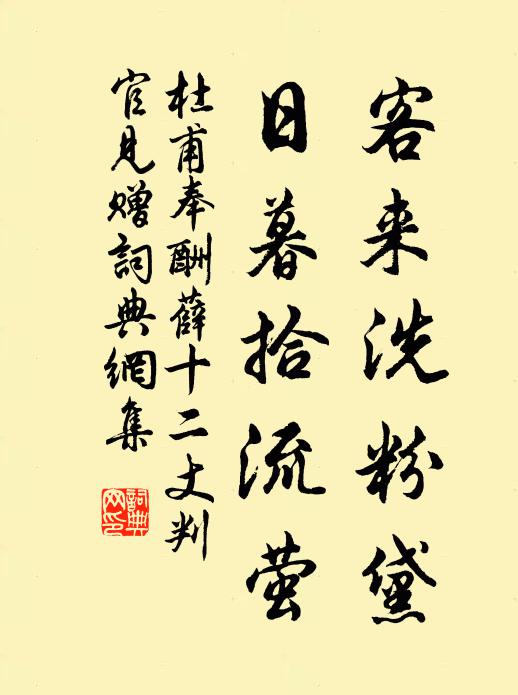 客来洗粉黛
日暮拾流萤
杜甫奉酬薛十二丈判
官見赠詞典網集
詞典网印